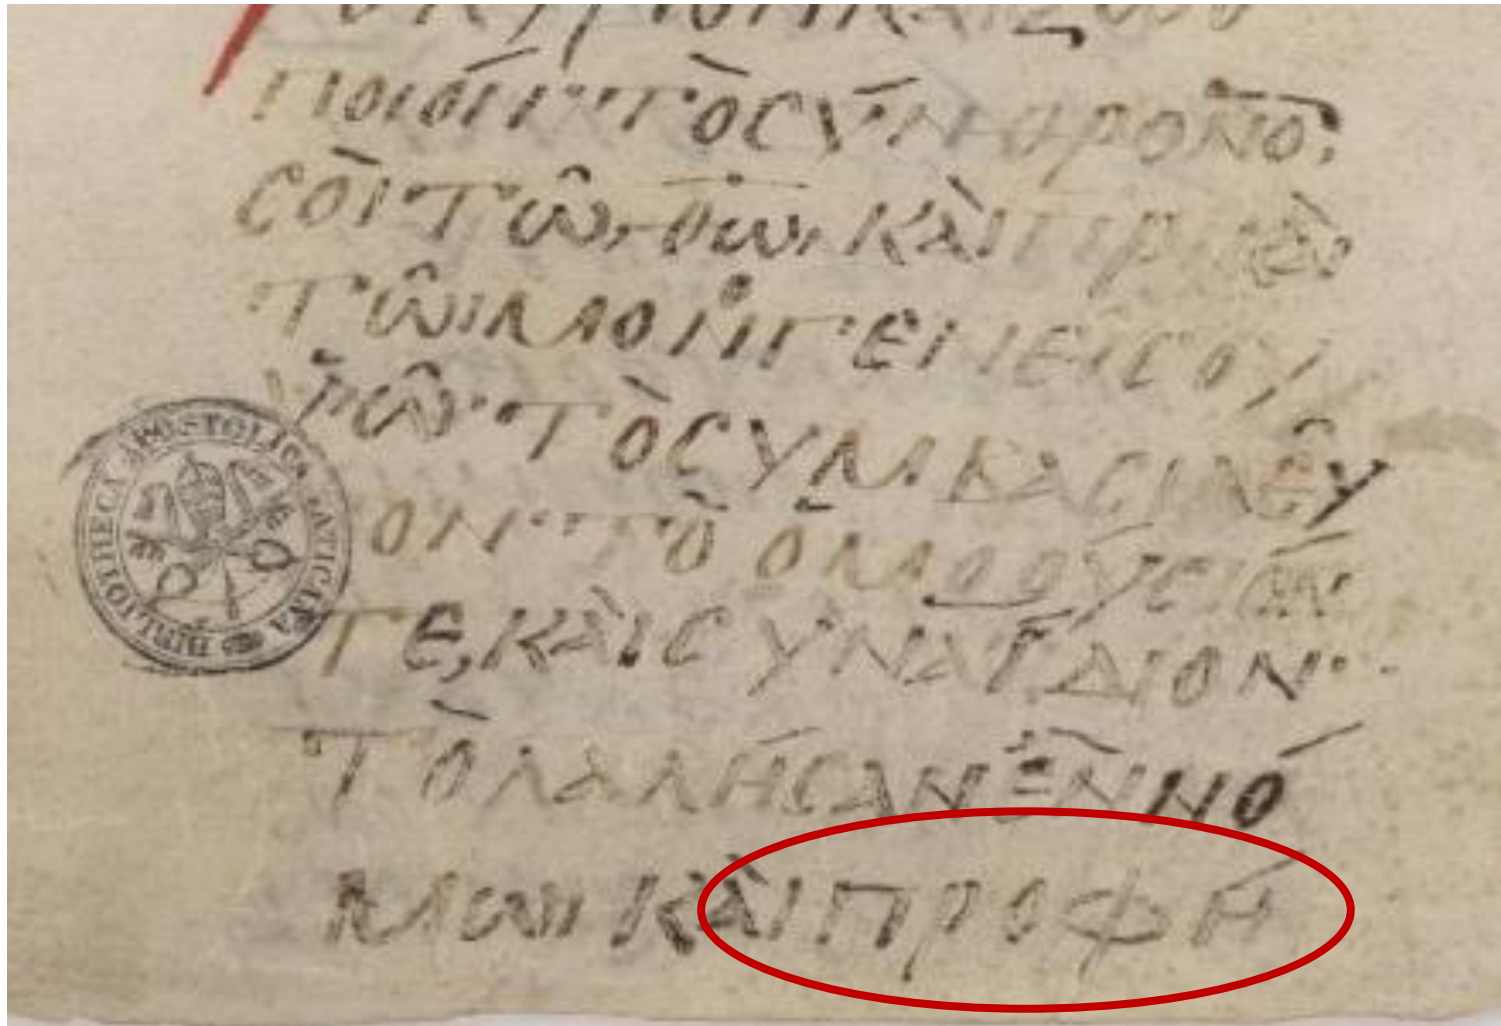 τὸ κύριον καὶ ζωο
ποιόν· τὸ σύνθρονόν
σοι τῶι θ̅ω̅ι καὶ π̅ρ̅ι καὶ
τῶι μονογενεῖ σου
υἱῶ· τὸ συμβασιλεῦ
ον· τὸ ὁμοούσιόν
τε, καὶ συναΐδιον·
τὸ λαλῆσαν ἐν νό
μωι καὶ προφή
BIBLIOTHECA APOSTOLICA VATICANA